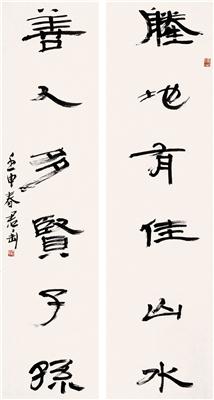 勝地有佳山水
善人多賢子孫
壬申春君匋